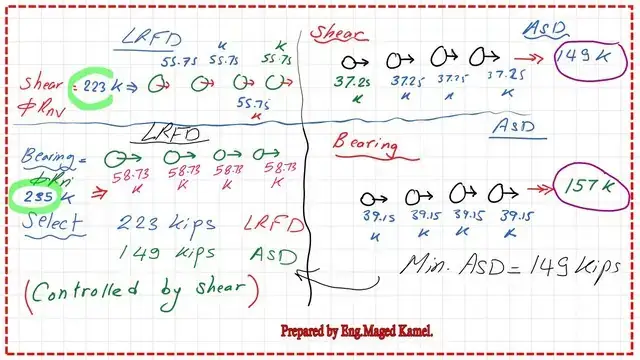 LRFD
55.75 K 55.75 K 55.75
Shear = 223 K ⇒
ΦRnv
55.75
K
LRFD
Bearing =
ΦRni
235 K ⇒
58.73 58.73 58.73 58.73
K K K K
Select 223 kips LRFD
149 kips ASD
(Controlled by shear)
Shear
ASD
149 K
37.25 37.25 37.25 37.25
K K K K
ASD
Bearing
157 K
39.15 39.15 39.15 39.15
K K K K
Min. ASD = 149 Kips
Prepared by Eng.Maged Kamel.